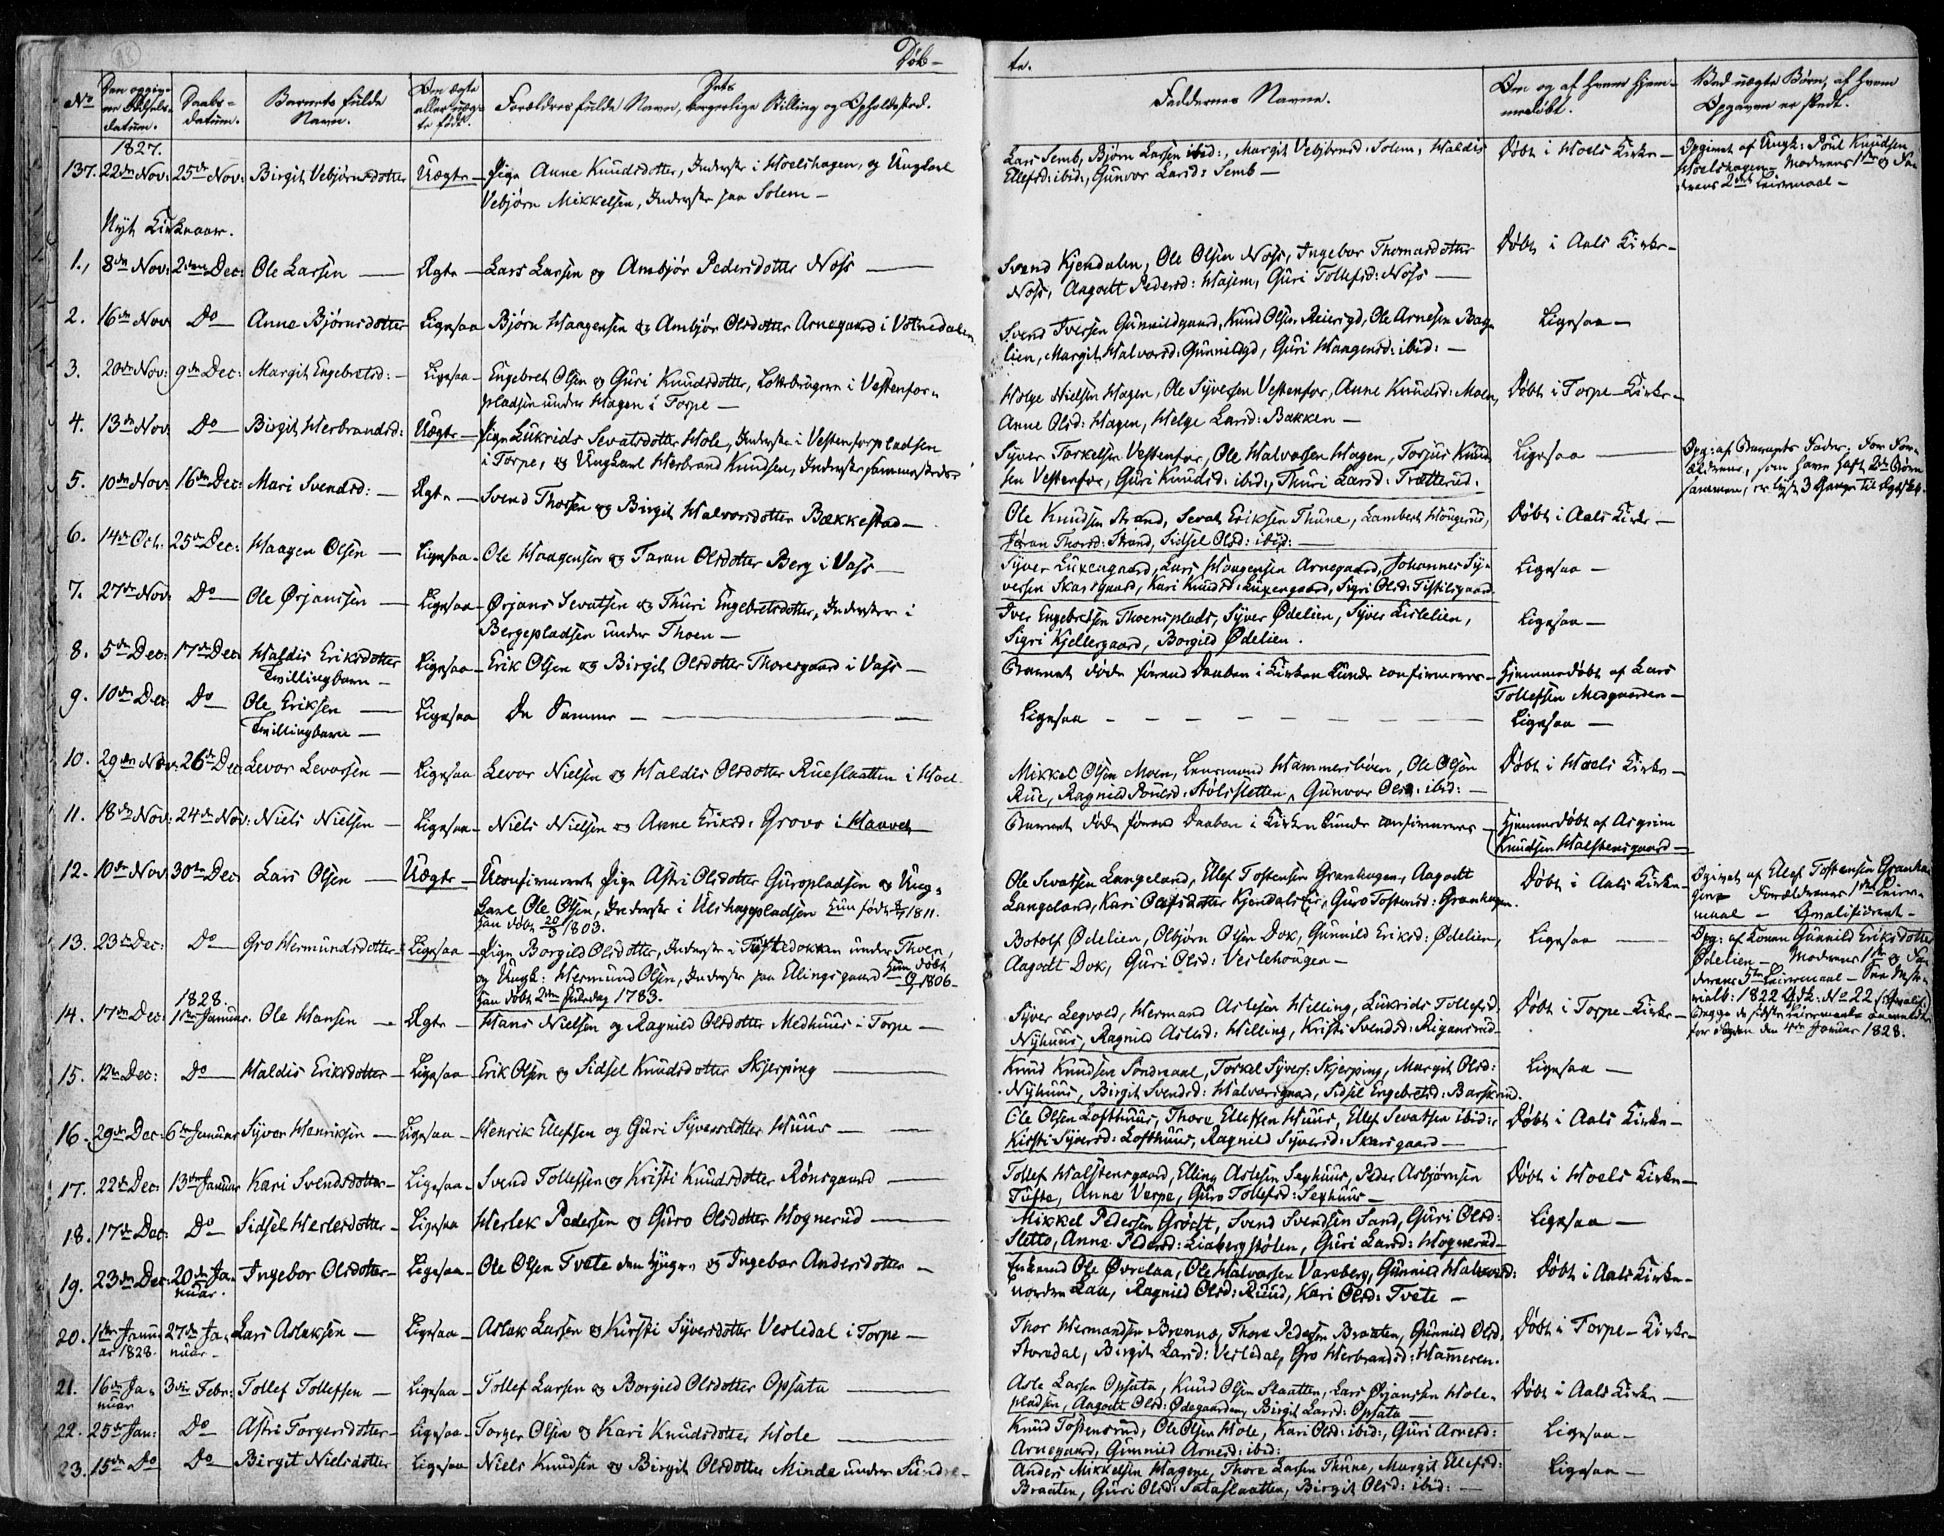 Døb-
te.
No
Den opgiv-
ne Fødsels-
datum.
Daabs-
datum.
Barnets fulde
Navn.
Om ægte
eller uæg-
te født.
Dets
Forældres fulde Navn, borgerlige Stilling og Opholdssted.
Faddernes Navne.
Om og af hvem hjem-
medøbt.
Ved uægte Børn, af hvem
Opgaven er skedt.
1827.
137. 22de Nov: 25de Nov: Birgit Vebjørnsdotter Uægte — Pige Anne Knudsdotter, Inderste i Hoelshagen, og Ungkarl
Vebjørn Mikkelsen, Inderste paa Solem —
Lars Semb, Bjørn Larsen ibid:, Margit Vebjørnsd: Solem, Haldis
Ellefsd: ibid:, Gunvor Larsd: Semb —
Døbt i Hoels Kirke —
Opgivet af Ungk: Poul Knudsen
Hoelshagen — Moderens 1ste og Fa-
derens 2det Leiermaal —
Nyt Kirkeaar.
1., 8de Nov: 2den Dec: Ole Larsen — Ægte — Lars Larsen og Ambjør Pedersdotter Noss —
Svend Kjendalen, Ole Olsen Noss, Ingebor Thomasdotter
Noss, Aagodt Pedersd: Hasem, Guri Tollefsd: Noss —
Døbt i Aals Kirke —
2. 16de Nov Do Anne Bjørnsdotter Ligesaa — Bjørn Haagensen og Ambjør Olsdotter Arnegaard i Votnedalen
Svend Iversen Gunnildgaard, Knud Olsen Reiersgd, Ole Arnesen Bag-
lien, Margit Halvorsd: Gunnildgd, Guri Haagensd: ibid: —
Ligesaa —
3. 20de Nov: 9de Dec: Margit Engebretsd: — Ligesaa — Engebret Olsen og Guri Knudsdotter, Leiebrugere i Vestenfor-
pladsen under Hagen i Torpe —
Helge Nielsen Hagen, Ole Syversen Vestenfor, Anne Knudsd: Moen,
Anne Olsd: Hagen, Helge Larsd: Bakken —
Døbt i Torpe Kirke —
4. 13de Nov Do Birgit Herbrandsd: Uægte — Pige Lukrids Sevatsdotter Hole, Inderste i Vestenforpladsen
i Torpe, og Ungkarl Herbrand Knudsen, Inderste sammesteds
Syver Torkelsen Vestenfor, Ole Halvorsen Hagen, Torjus Knud-
sen Vestenfor, Guri Knudsd: ibid:, Thuri Larsd: Trætterud.
Ligesaa —
Opg: af Barnets Fader. For For-
ældrene, som have haft 2de Børn
sammen, er lyst 3 Gange til Ægtesk.
5. 10de Nov: 16de Dec: Mari Svendsd: — Ægte — Svend Thorsen og Birgit Halvorsdotter Bækkestad —
Ole Knudsen Strand, Sevat Eriksen Thune, Lambert Hougerud,
Jøran Thorsd: Strand, Sidsel Olsd: ibid: —
Døbt i Aals Kirke —
6. 14de Oct. 25de Dec: Haagen Olsen — Ligesaa — Ole Haagensen og Taran Olsdotter Berg i Vass —
Syver Luxengaard, Lars Haagensen Arnegaard, Johannes Sy-
versen Skarsgaard, Kari Knudsd: Luxengaard, Sigri Olsd: Tistilsgaard.
Ligesaa —
7. 27de Nov: Do Ole Ørjansen — Ligesaa — Ørjans Sevatsen og Thuri Engebretsdotter, Inderster i
Bergepladsen under Thoen —
Iver Engebretsen Thoensplads, Syver Ødelien, Syver Lislelien,
Sigri Kjellergaard, Borgild Ødelien.
Ligesaa —
8. 5te Dec: 17de Dec: Haldis Eriksdotter
Tvillingbarn — Ligesaa — Erik Olsen og Birgit Olsdotter Thoresgaard i Vass —
Barnet døde førend Daaben i Kirken kunde confirmeres —
Hjemmedøbt af Lars
Tollefsen Medgaarden —
9. 10de Dec Do Ole Eriksen —
Tvillingbarn — Ligesaa — De Samme —
Ligesaa —
Ligesaa —
10. 29de Nov: 26de Dec Levor Levorsen — Ligesaa Levor Nielsen og Haldis Olsdotter Rueslaatten i Hoel
Mikkel Olsen Moen, Lensmand Hammersbøen, Ole Olsen
Rue, Ragnild Poulsd: Stølesletten, Gunvor Olsd: ibid: —
Døbt i Hoels Kirke —
11. 18de Nov: 24de Nov: Niels Nielsen — Ligesaa — Niels Nielsen og Anne Eriksd: Grovo i Hauvet
Barnet døde førend Daaben i Kirken kunde confirmeres —
Hjemmedøbt af Asgrim
Knudsen Halstensgaard —
12. 10de Nov 30te Dec: Lars Olsen — Uægte — Uconfirmeret Pige Astri Olsdotter Guropladsen og Ung-
karl Ole Olsen, Inderste i Ulshagepladsen hun født 1811.
han døbt 20/3 1803.
Ole Sevatsen Langeland, Ellef Tostensen Granhagen, Aagodt
Langeland, Kari Olafsdotter Kjendalslie, Guro Tostensd: Granhagen.
Døbt i Aals Kirke —
Opgivet af Ellef Tostensen Granha-
gen — Forældrenes 1ste Leier-
maal — Qvalificeret —
13. 23de Dec: Do Gro Hermundsdotter Ligesaa — Pige Borgild Olsdotter, Inderste i Tuftedokken under Thoen,
og Ungk: Hermund Olsen, Inderste paa Ellingsgaard hun døbt 1806.
han døbt 2den Juledag 1783.
Botolf Ødelien, Olbjørn Olsen Dok, Gunnild Eriksd: Ødelien,
Aagodt Dok, Guri Olsd: Veslehougen —
Ligesaa —
Opg: af Konen Gunnild Eriksdotter
Ødelien — Moderens 1ste og Fa-
derens 5te Leiermaal —
1822 No 22
for Sagen den 4de Januar 1828.
1828.
14. 17de Dec: 1ste Januar. Ole Hansen — Ægte — Hans Nielsen og Ragnild Olsdotter Medhuus i Torpe —
Syver Legvold, Hermand Aslesen Helling, Lukrids Tollefsd:
Nyhuus, Ragnild Aslesd: Helling, Kristi Svendsd: Rigansrud —
Døbt i Torpe Kirke —
15. 12te Dec: Do Haldis Eriksdotter — Ligesaa — Erik Olsen og Sidsel Knudsdotter Skjerping —
Knud Knudsen Sondreaal, Torkel Syvers: Skjerping, Margit Olsd:
Nyhuus, Birgit Svendsd: Halvorsgaard, Sidsel Engebretsd: Barskrud.
Ligesaa —
16. 29de Dec: 6te Januar Syver Henriksen — Ligesaa — Henrik Ellefsen og Guri Syversdotter Huus —
Ole Olsen Lofthuus, Thore Ellefsen Huus, Ellef Sevatsen ibid:,
Kirsti Syversd: Lofthuus, Ragnild Syversd: Skarsgaard —
Døbt i Aals Kirke —
17. 22de Dec: 13de Januar Kari Svendsdotter — Ligesaa — Svend Tollefsen og Kristi Knudsdotter Rønsgaard —
Tollef Halstensgaard, Elling Aslesen Sexhuus, Peder Asbjørnsen
Tufte, Anne Verpe, Guro Tollefsd: Sexhuus —
Døbt i Hoels Kirke —
18. 17de Dec: Do Sidsel Herleksdotter — Ligesaa Herlek Pedersen og Guro Olsdotter Hognerud —
Mikkel Pedersen Grødt, Svend Svendsen Sand, Guri Olsd:
Sletto, Anne Pedersd: Liabergstølen, Guri Larsd: Hognerud —
Ligesaa —
19. 23de Dec: 20de Ja-
nuar. Ingebor Olsdotter — Ligesaa — Ole Olsen Tvete den yngre og Ingebor Andersdotter —
Enkemd Ole Øvrelaa, Ole Halvorsen Vareberg, Gunnild Halvorsd:
nordre Lau, Ragnild Olsd: Ruud, Kari Olsd: Tvete —
Døbt i Aals Kirke —
20. 1ste Janu-
ar 1828. 27de Ja-
nuar — Lars Aslaksen — Ligesaa — Aslak Larsen og Kirsti Syversdotter Vesledal i Torpe —
Thor Hermandsen Brenno, Thore Pedersen Braaten, Gunnild Olsd:
Storedal, Birgit Larsd: Vesledal, Gro Herbrandsd: Hameren.
Døbt i Torpe Kirke —
21. 16de Ja-
nuar 3die Febr: Tollef Tollefsen — Ligesaa — Tollef Larsen og Borgild Olsdotter Opsata —
Asle Larsen Opsata, Knud Olsen Slaatten, Lars Ørjansen Hole-
pladsen, Aagodt Olsd: Ødegaarden, Birgit Larsd: Opsata —
Døbt i Aals Kirke —
22. 25de Jan: Do Astri Torgersdotter — Ligesaa — Torger Olsen og Kari Knudsdotter Hole —
Knud Tostensrud, Ole Olsen Hole, Kari Olsd: ibid:, Guri Arnesd:
Arnegaard, Gunnild Arnesd: ibid:
Ligesaa —
23. 15de Do Do Birgit Nielsdotter Ligesaa Niels Knudsen og Birgit Olsdotter Minde under Sundre —
Anders Mikkelsen Hagene, Thore Larsen Thune, Margit Ellefsd:
Braaten, Guri Olsd: Sataslaatten, Birgit Olsd: ibid: —
Ligesaa —